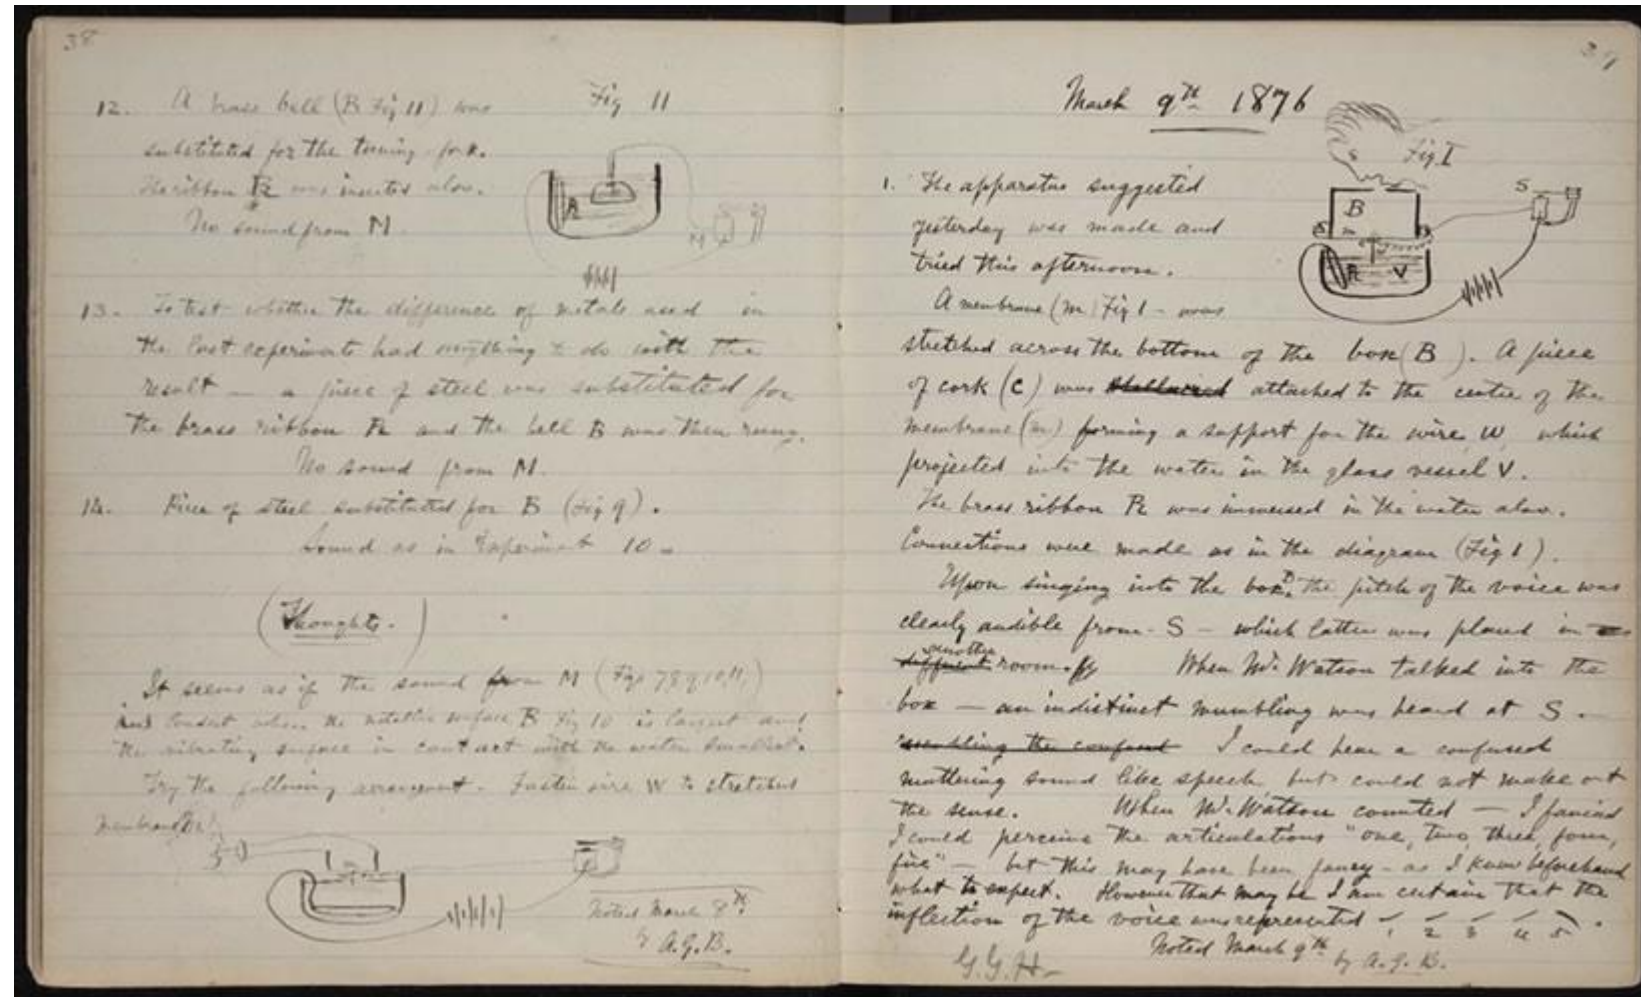 38
12. A brass bell (B Fig 11) was
substituted for the tuning-fork.
The ribbon R was inserted also.
No sound from M.
Fig 11
R
M
13. To test whether the difference of metals used in
the last experiments had anything to do with the
result — a piece of steel was substituted for
the brass ribbon R and the bell B was then rung.
No sound from M.
14. Piece of steel substituted for B (Fig 9).
Sound as in Experiment 10 —
(Thoughts.)
It seems as if the sound from M (Figs 7 8 9, 10, 11,)
was loudest when the metallic surface B Fig 10 is largest and
the vibrating surface in contact with the water smallest.
Try the following arrangement. Fasten wire W to stretched
membrane
Noted March 8th
by A.G.B.
39
March 9th 1876
Fig. I
B
m
S
R
V
1. The apparatus suggested
yesterday was made and
tried this afternoon.
A membrane (m) Fig 1 — was
stretched across the bottom of the box (B). A piece
of cork (C) was attached to the centre of the
membrane (m) forming a support for the wire W, which
projected into the water in the glass vessel V.
The brass ribbon R was immersed in the water also.
Connections were made as in the diagram (Fig 1).
Upon singing into the box B, the pitch of the voice was
clearly audible from - S — which latter was placed in
another
different room. When Mr. Watson talked into the
box — an indistinct mumbling was heard at S.
resembling the confused I could hear a confused
muttering sound like speech but could not make out
the sense. When Mr. Watson counted — I fancied
I could perceive the articulations "one, two, three, four,
five" — but this may have been fancy — as I knew beforehand
what to expect. However that may be I am certain that the
inflection of the voice was represented
1 2 3 4 5.
Noted March 9th by A.G.B.
G.G.H—